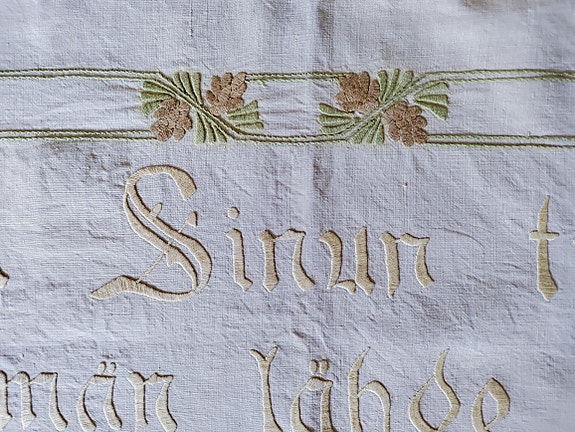 Sinun t
män lähde